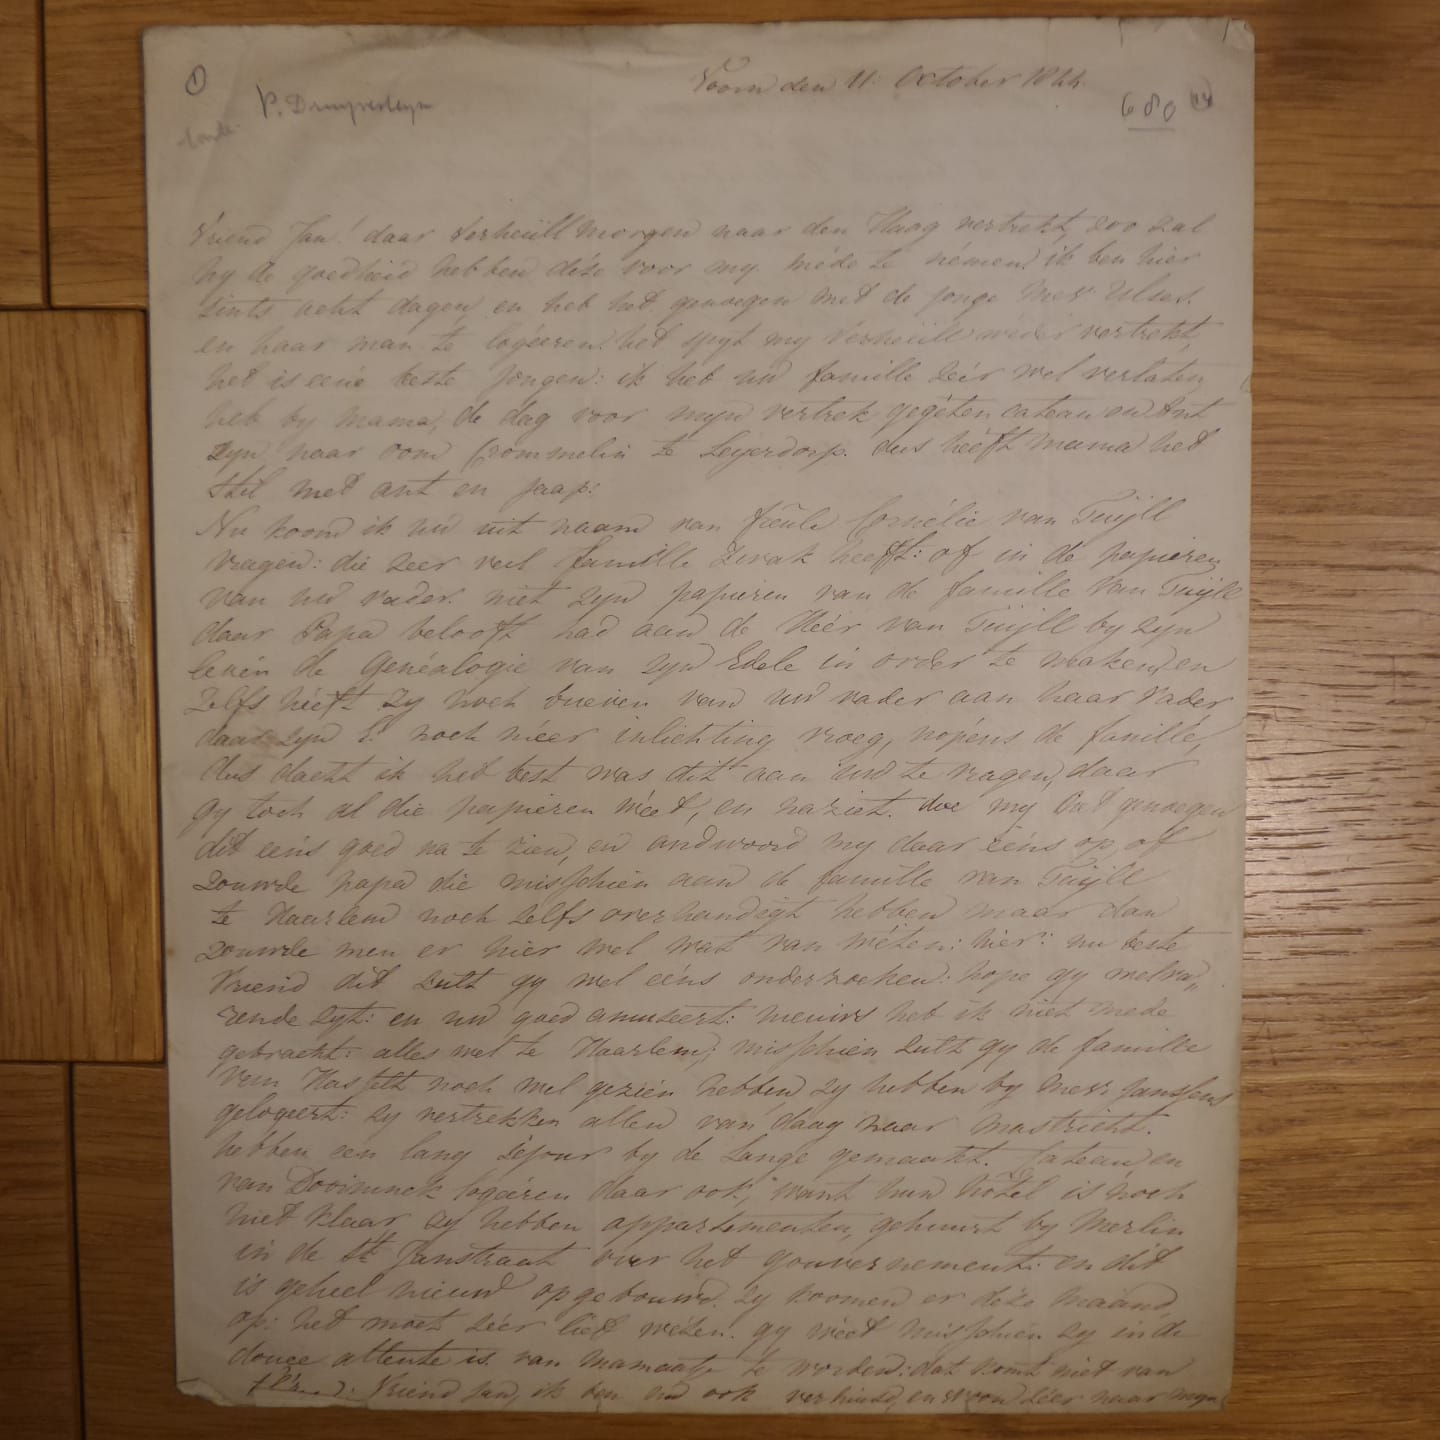 1
P. Druyvesteyn
Voorn den 11. October 1844.
680
Vriend Jan! daar Verheüll morgen naar den Haag vertrekt, zoo zal
hy de goedheid hebben déze voor my méde te némen: ik ben hier
sints acht dagen en heb het genoegen met de jonge Mevr
en haar man te logéeren: het spyt my Verheüll wéder vertrekt,
het is eene beste jongen: ik heb uw famille zéér wel verlaten,
heb by mama, de dag voor myn vertrek gegéten, cateau en
zyn naar oom Crommelin te Leyerdorp. dus hééft mama het
stil met ant en jaap:
Nu koom ik uw uit naam van freule Cornélie van Tuijll
vragen: die zeer veel famille zwak heeft: of in de papieren
van uw vader. niet zyn papieren van de famille van Tuijll
daar Papa belooft had aan de Héér van Tuijll by zyn
leven de Genéalogie van zyn Edele in order te maken, en
zelfs hééft zy noch brieven van uw vader aan haar vader
daar zyn E. noch méer inlichting vroeg, nopéns de famille,
dus dacht ik het best was dit aan uw te vragen, daar
gy toch al die papieren wéet, en naziet. doe my dat genoegen
dit eens goed na te zien, en andwoord my daar eéns op, of
zouwde papa die misschien aan de famille van Tuijll
te Haarlem noch zelfs overhandigt hebben maar dan
zouwde men er hier wel wat van wéten: hier: nu beste
Vriend dit zult gy wel eéns onderzoeken: hope gy welva„
rende zyt: en uw goed amuseert: nieuws heb ik niet mede
gebracht: alles wel te Haarlem; misschien zult gy de famille
van Hasselt noch wel gezien hebben, zy hebben by Mevr Janssens
gelogeert: zy vertrekken allen van daag naar Mastricht.
hebben een lang séjour by de Lange gemaakt. Cateau, en
van Dooininck logéeren daar ook, want hun hôtel is noch
niet klaar zy hebben appartementen, gehuurt by Merlin
in de St Janstraat over het gouvernement: en dit
is geheel nieuw opgebouwd. zy koomen er déze maand,
op: het moet zéér lief wézen. gy wéet misschien zy in de
douce attente is van mamaatje te worden: dat komt niet van
Vriend Jan, ik ben en ook verhuisd, en woon zéer naar myn